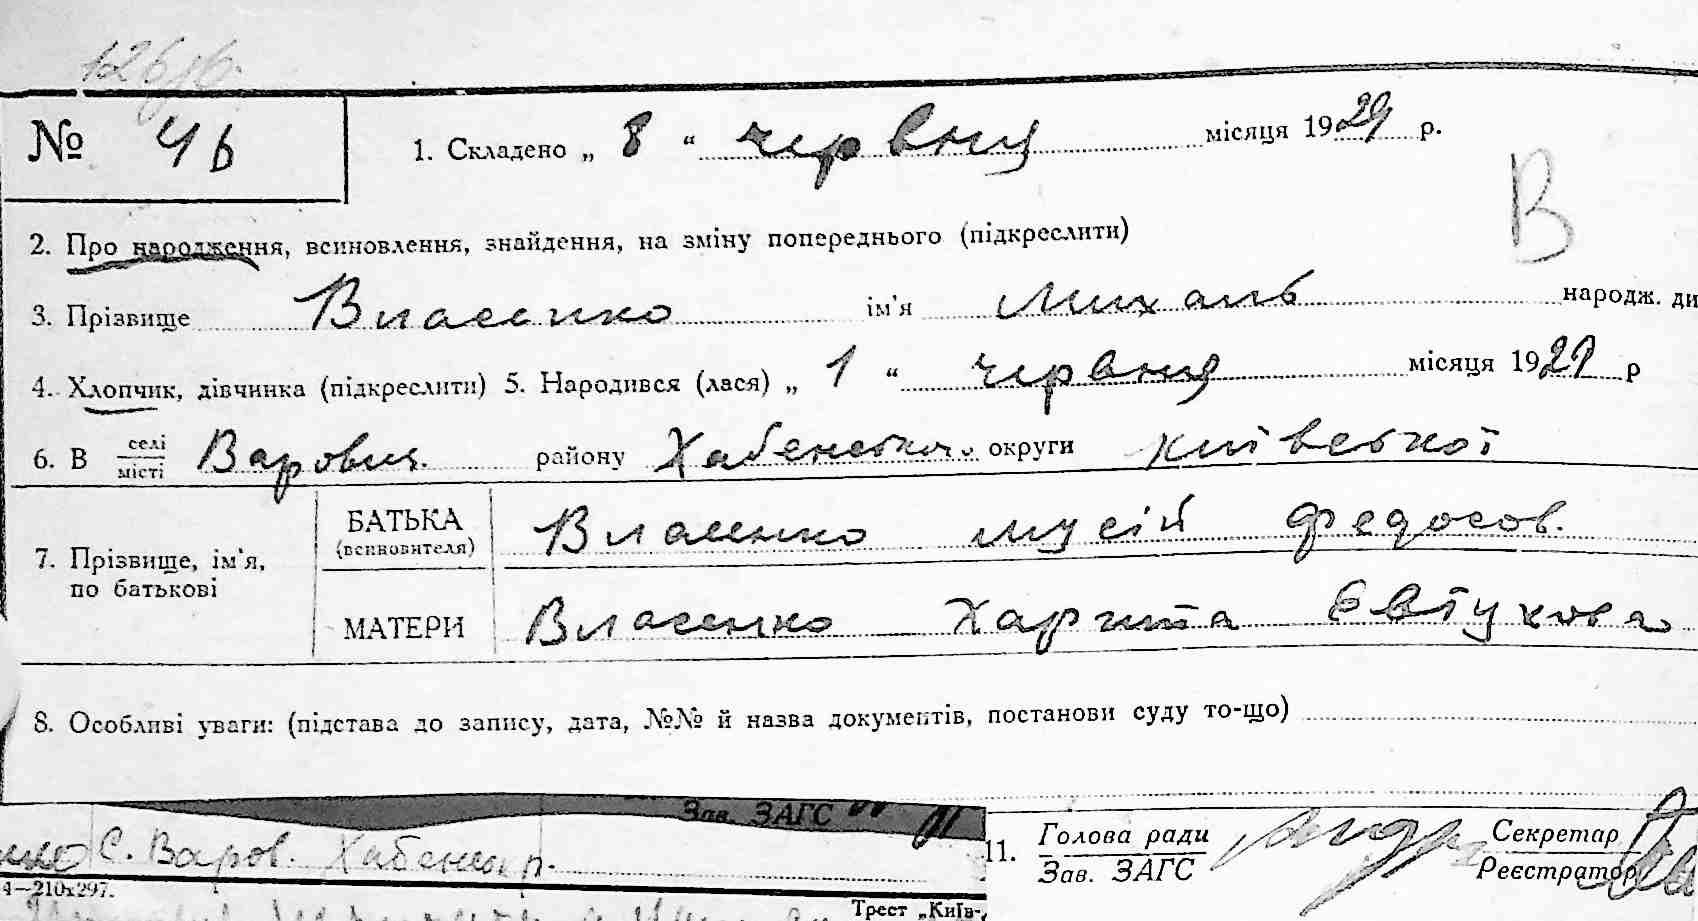 № 46
1. Складено „ 8 “ червня місяця 1929 р.
В
2. Про народження, всиновлення, знайдення, на зміну попереднього (підкреслити)
3. Прізвище Власенко ім'я Михаль народж. ди
4. Хлопчик, дівчинка (підкреслити) 5. Народився (лася) „ 1 “ червня місяця 1929 р
6. В селі місті Варовичі району Хабенськ. округи київської
7. Прізвище, ім'я, по батькові
БАТЬКА (всиновителя) Власенко Мусій Федосов.
МАТЕРИ Власенко Харитта Євтухова
8. Особливі уваги: (підстава до запису, дата, №№ й назва документів, постанови суду то-що)
Зав. ЗАГС
С. Варов. Хабенськ р.
11. Голова ради Секретар
Зав. ЗАГС Реєстратор
4—210х297.
Трест „Київ-